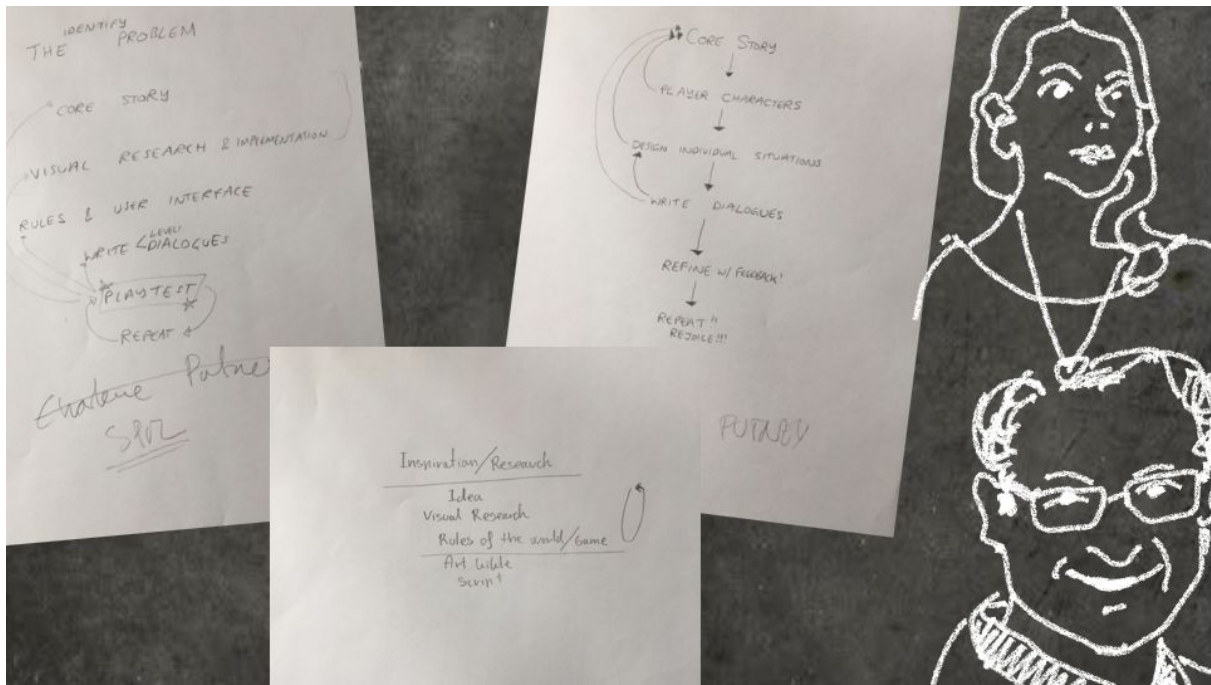 IDENTIFY
THE PROBLEM
CORE STORY
VISUAL RESEARCH & IMPLEMENTATION
RULES & USER INTERFACE
LEVEL!
WRITE < DIALOGUES
PLAYTEST
REPEAT
CORE STORY
PLAYER CHARACTERS
DESIGN INDIVIDUAL SITUATIONS
WRITE DIALOGUES
REFINE W/ FEEDBACK!
REPEAT!!
REJOICE!!!
PUTNEY
Inspiration/Research
Idea
Visual Research
Rules of the world/Game
Art bible
Script